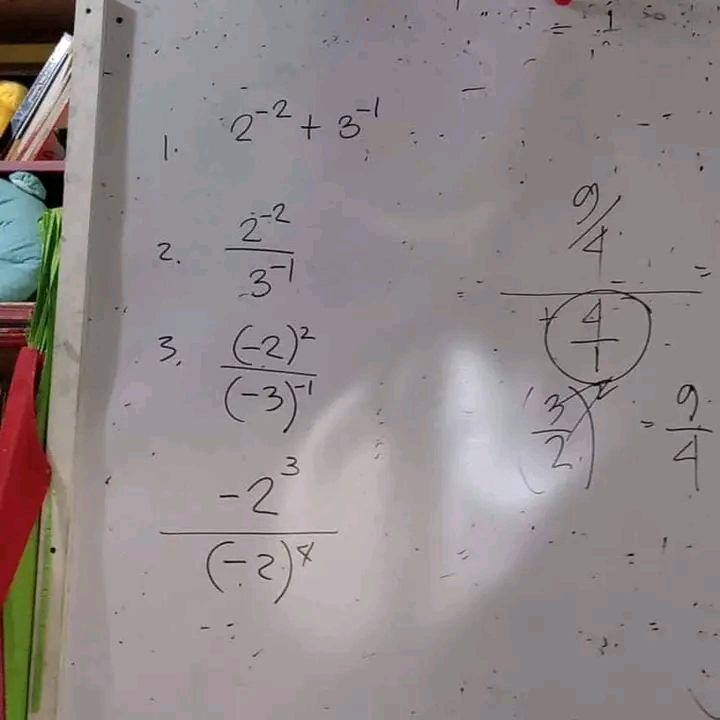 = 1 so
1. 2⁻² + 3⁻¹
2. 2⁻² / 3⁻¹
3. (-2)² / (-3)⁻¹
-2³ / (-2)⁴
= 9/4 / 4/1 =
(3/2)² = 9/4